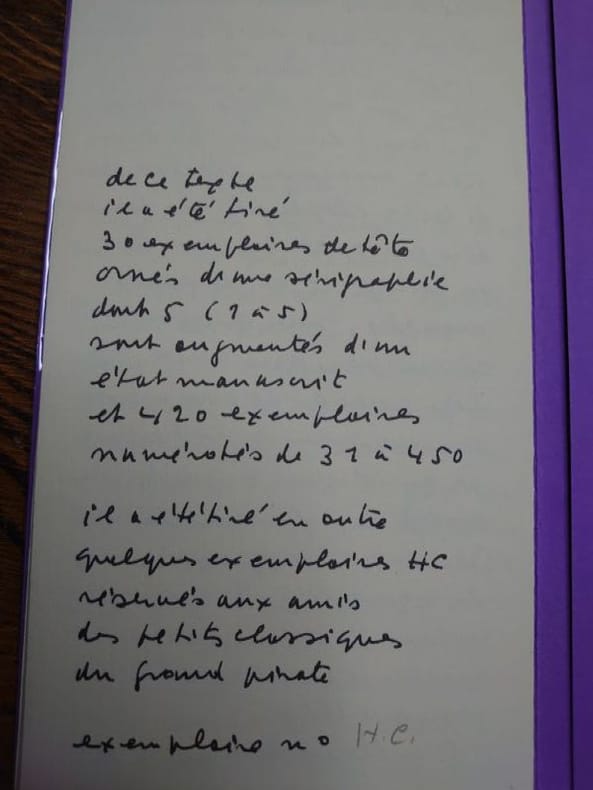 de ce texte
il a été tiré
30 exemplaires de tête
ornés d'une sérigraphie
dont 5 (1 à 5)
sont augmentés d'un
état manuscrit
et 420 exemplaires
numérotés de 31 à 450
il a été tiré en outre
quelques exemplaires HC
réservés aux amis
des petits classiques
du grand pirate
exemplaire no H.C.